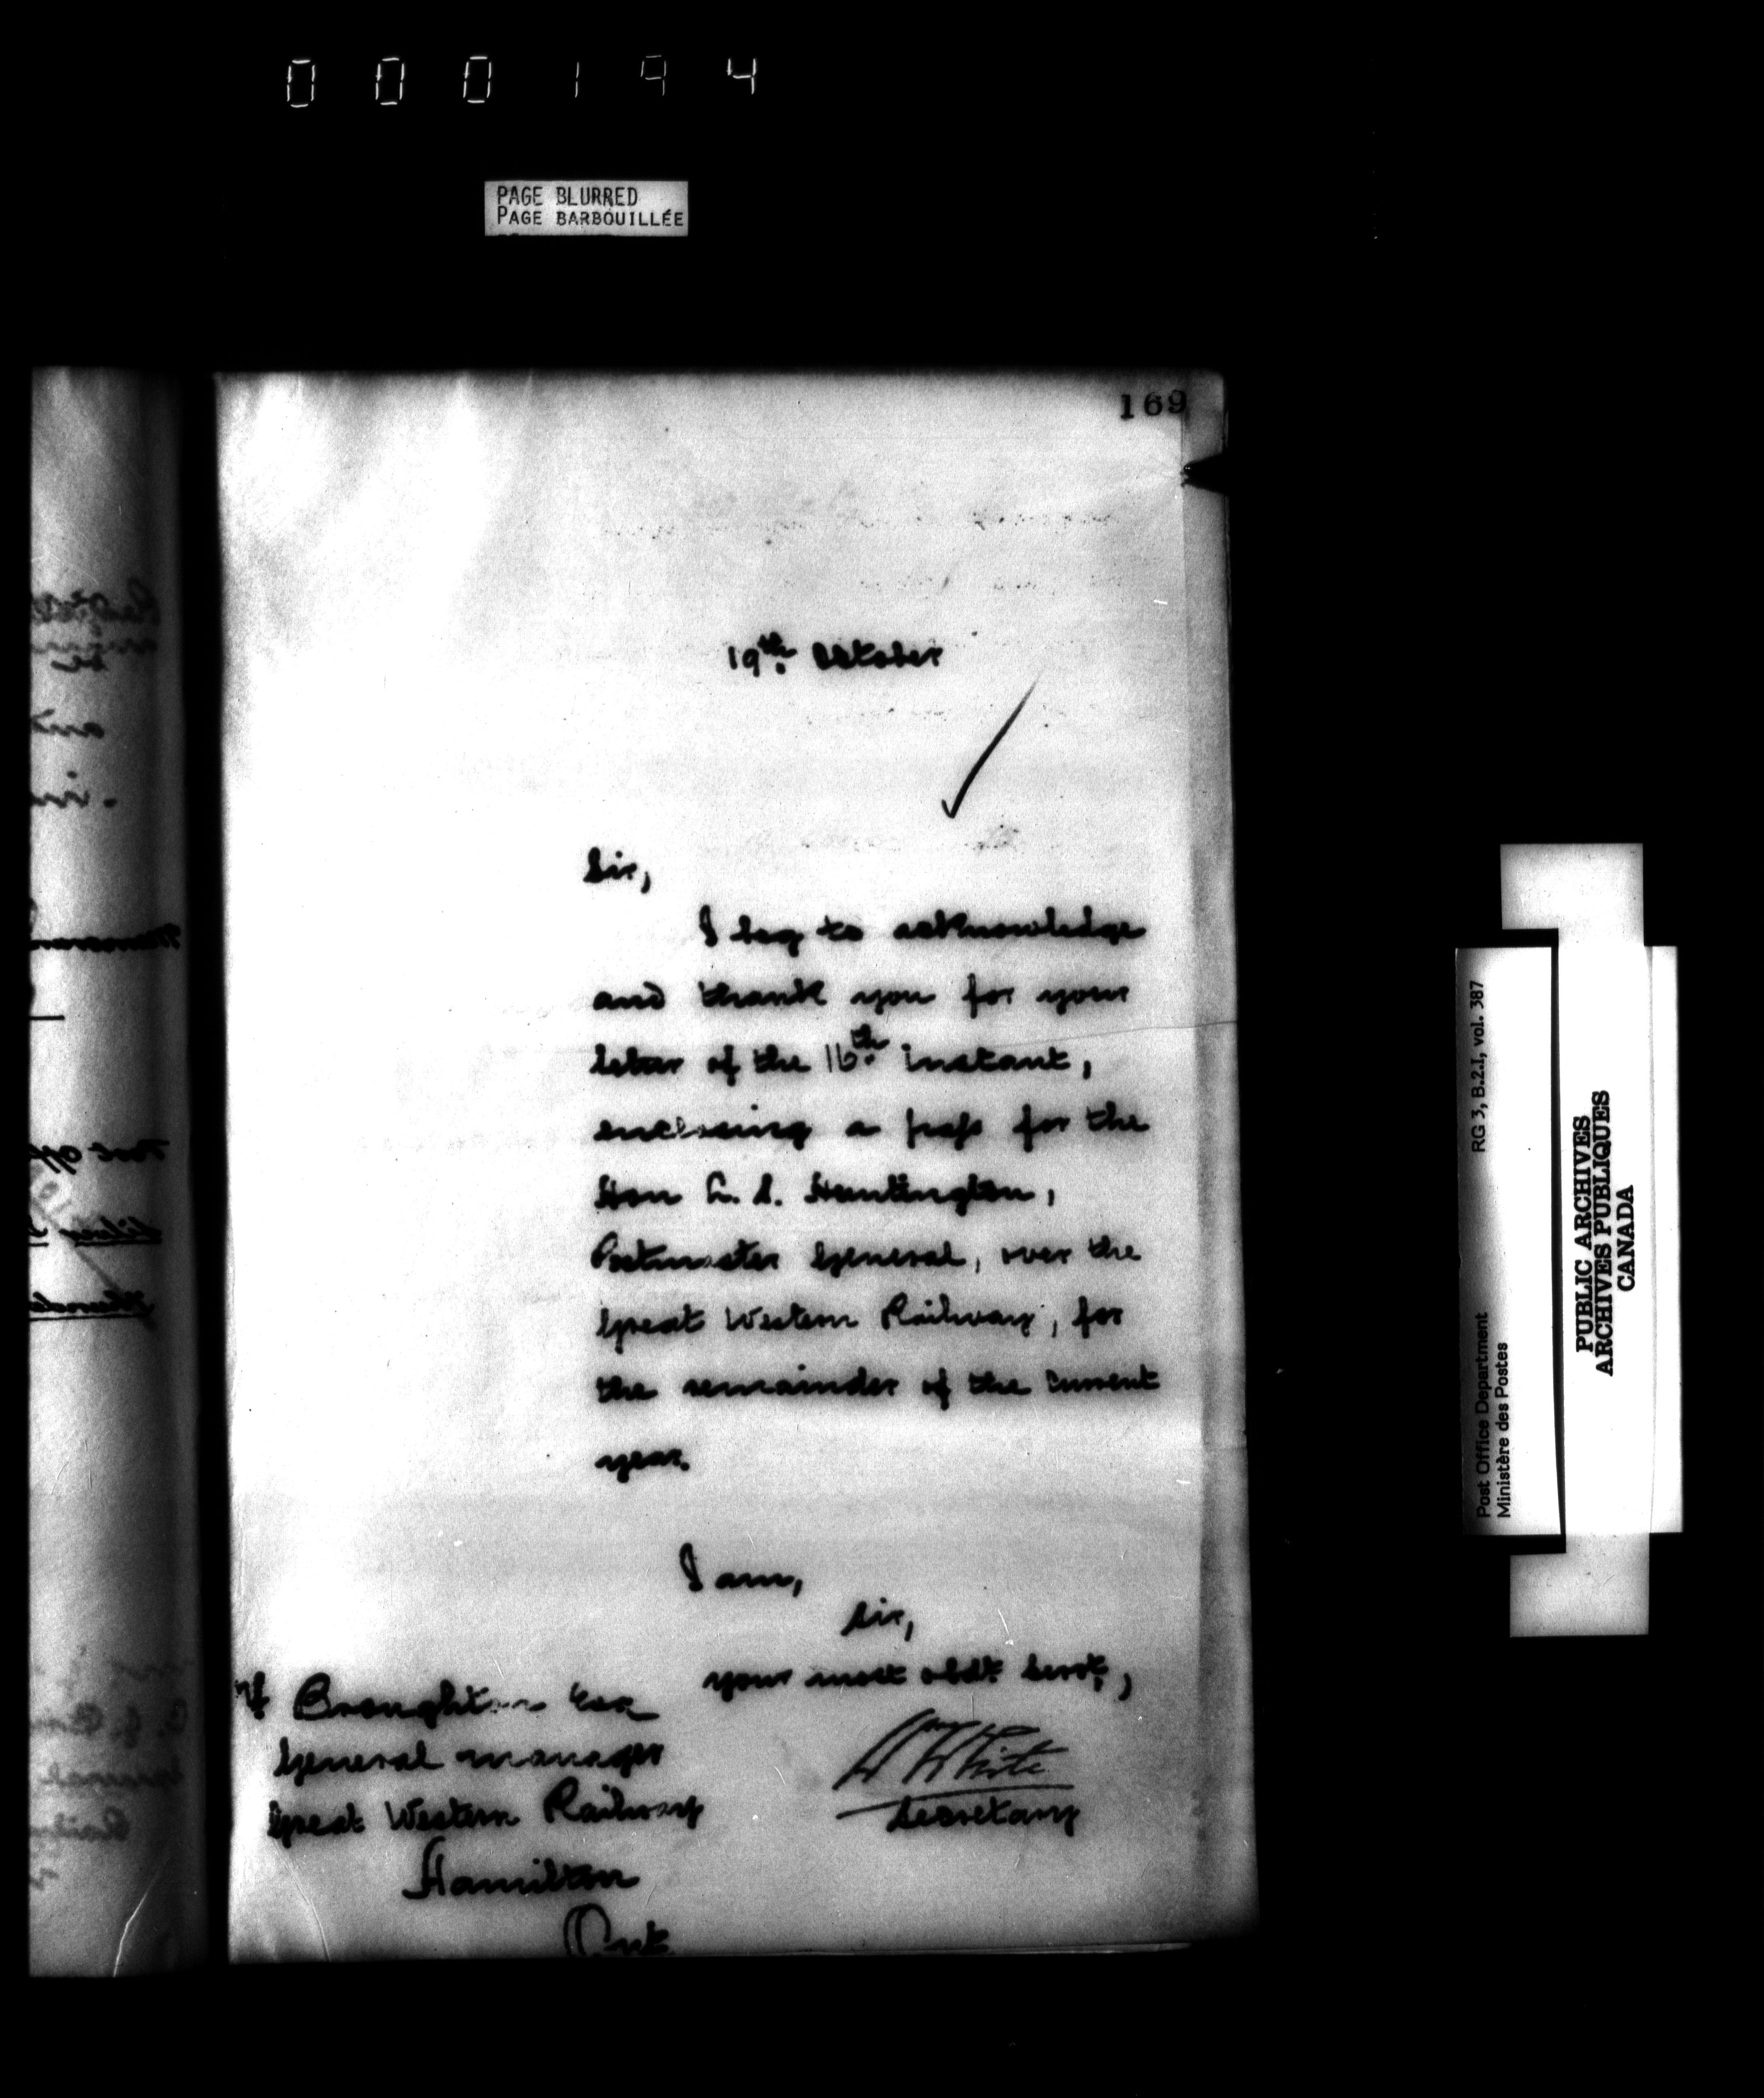 000194
PAGE BLURRED
PAGE BARBOUILLÉE
169
19th. October
Sir,
I beg to acknowledge
and thank you for your
letter of the 16th. instant,
enclosing a pass for the
Hon L. S. Huntington,
Postmaster General, over the
Great Western Railway, for
the remainder of the current
year.
I am,
Sir,
your most obdt. Servt,
Broughton Esq
General Manager
Great Western Railway
Hamilton
Ont
White
Secretary
Post Office Department RG 3, B.2.I, vol. 387
Ministère des Postes
PUBLIC ARCHIVES
ARCHIVES PUBLIQUES
CANADA